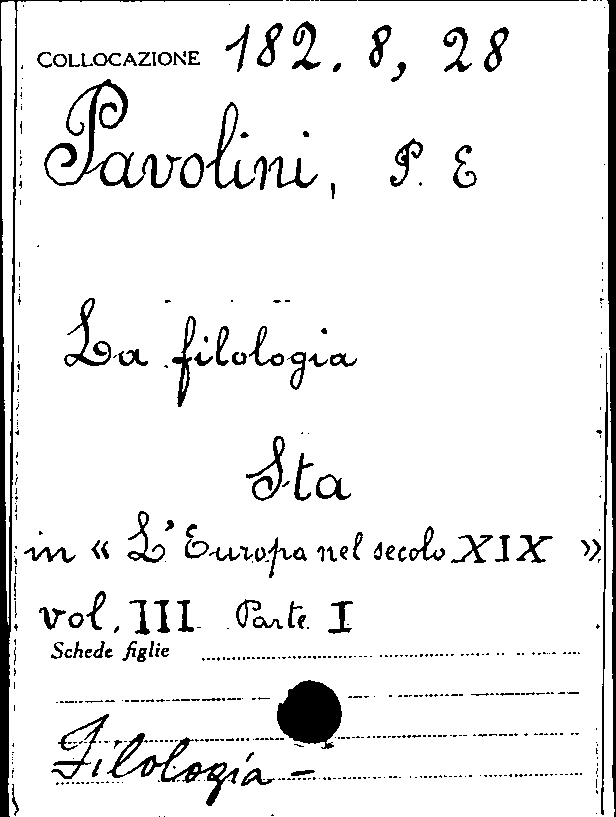 COLLOCAZIONE 182. 8, 28
Pavolini, P. E
La filologia
Sta
in « L'Europa nel secolo XIX »
vol. III Parte I
Schede figlie
Filologia -